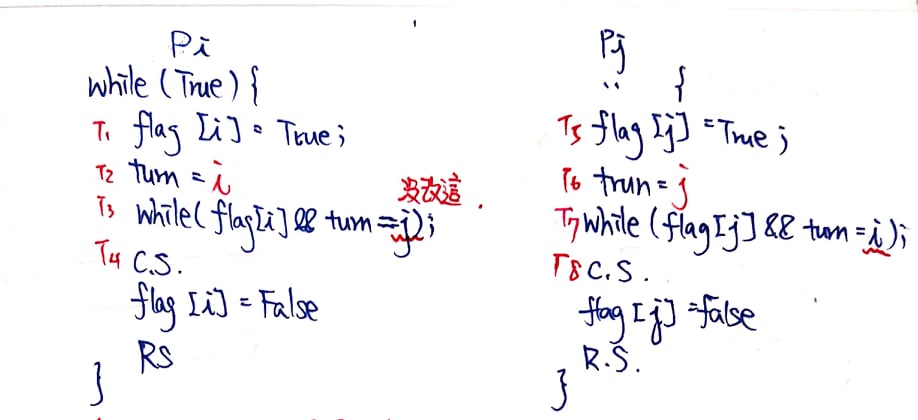 Pi
while (True) {
T1 flag [i] = True;
T2 turn = i
沒改這.
T3 while(flag[i] && turn == j);
T4 C.S.
flag [i] = False
RS
}
Pj
{
T5 flag [j] = True;
T6 trun = j
T7 while (flag[j] && turn = i);
T8 C.S.
flag [j] = false
R.S.
}